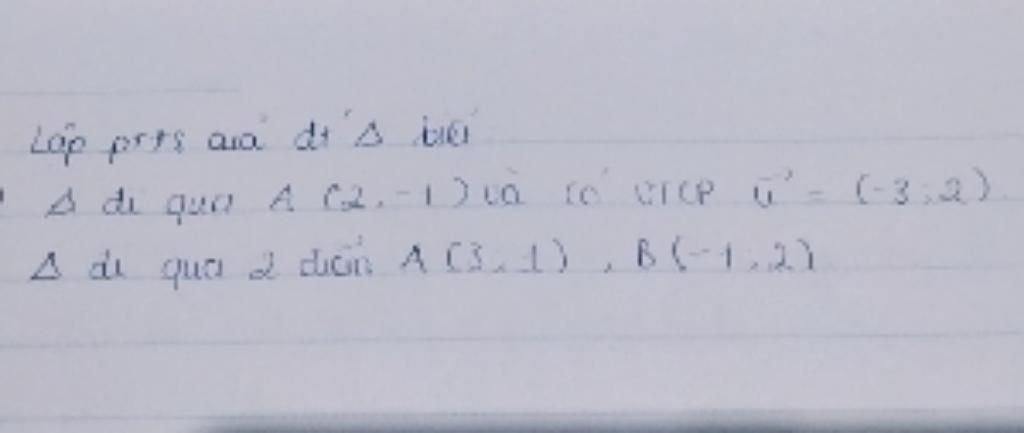 Lập ptts của đt Δ biết
Δ đi qua A (2,-1) và có VTCP u⃗ = (-3;2)
Δ đi qua 2 điểm A (3,1), B(-1,2)